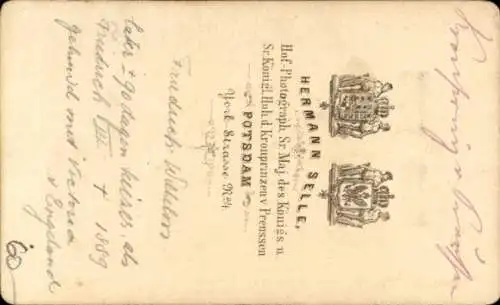 HERMANN SELLE,
Hof-Photograph Sr. Maj. des Königs u.
Sr. Königl. Hoh. d. Kronprinzen v. Preussen
POTSDAM
York Strasse No. 4
Friedrich Wilhelm
later ± 90 dagen keiser, als
Friedrich III † 1889
gehuwd met Victoria
v Engeland
60